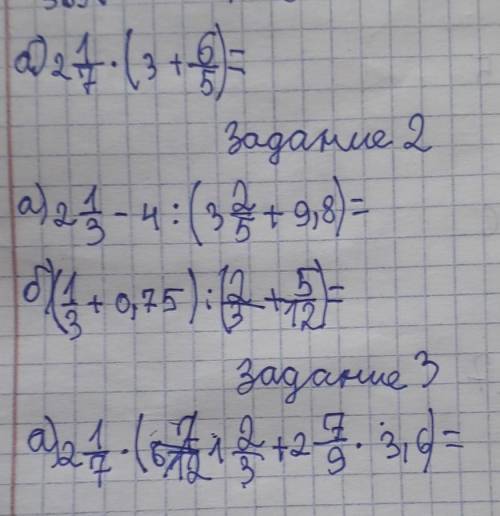 а) 2 1/7 · (3 + 6/5) =
Задание 2
а) 2 1/3 - 4 : (3 2/5 + 9,8) =
б) (1/3 + 0,75) : (2/3 + 5/12) =
Задание 3
а) 2 1/7 · ( 1 2/3 + 2 7/9 · 3,6) =